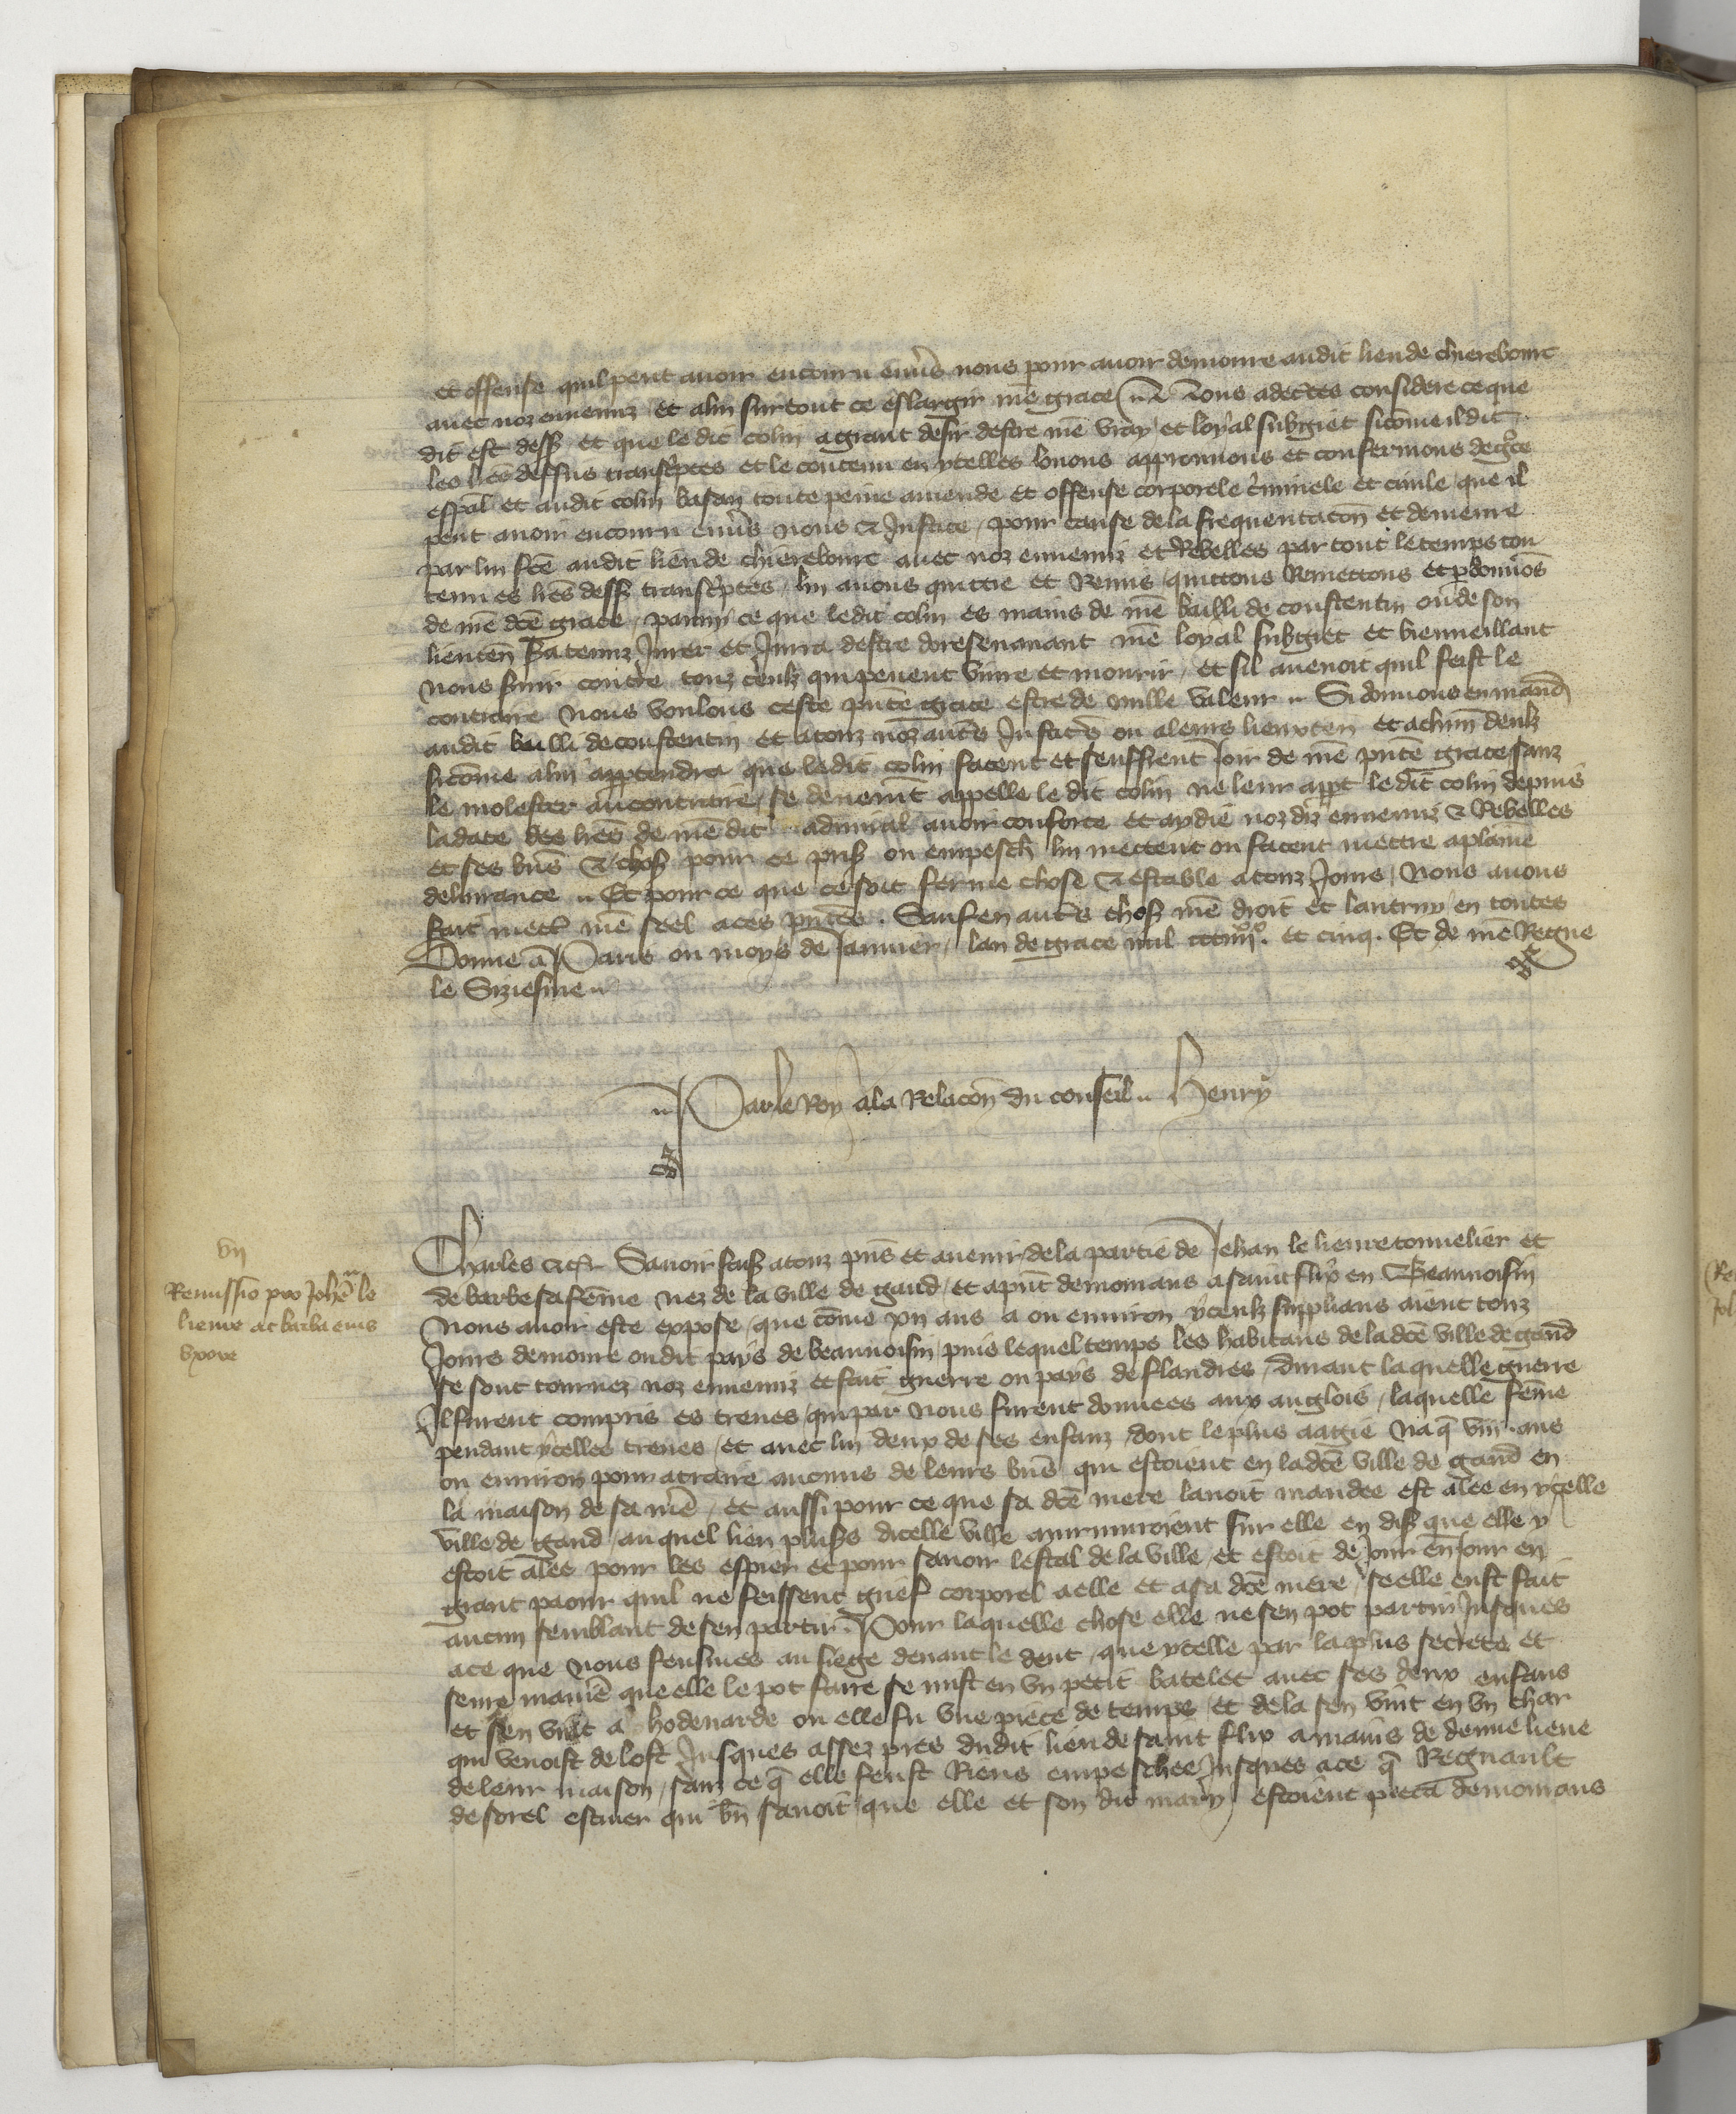 et offense quil peut avoir encouru env̄s nous pour avoir demoure audit lieu de chierebourc
avec noz ennemiz et alui sur tout ce eslargir n̄re grace Nous adcertes considere ce que
dit est dess̄ et que le dit colin a grant desir destre n̄re vray et loyal subgiet sicōme il dit
les l̄res dessus transc̄ptes et le contenu en ycelles louons approuvons et confermons de gr̄ce
esp̄al et audit colin basan toute peine amende et offense corporele c̄minele et civile que il
peut avoir encouru env̄s nous & Justice pour cause de la frequentacōn et demeure
par lui f̄ce audit lieu de chierebourc avec noz ennemiz et Rebelles par tout le temps con
tenu es l̄res dess̄ transc̄ptes lui avons quittie et Remis quittons Remettons et pdonnōs
de n̄re dc̄e grace parmy ce que ledit colin es mains de n̄re bailli de coustentin ou de son
lieuten̄ sera tenuz Jurer et Jurra destre doresenavant n̄re loyal subgiet et bienveillant
nous servir contre touz ceulx qui pevent vivre et mourir et sil avenoit quil feist le
contraire nous voulons ceste pn̄te grace estre de nulle valeur Si donnons en mand̄
audit bailli de coustentin et a touz noz aut̄s Justic̄s ou aleurs lieuxten̄ et achūn deulx
sicōme alui apptendra que le dit colin facent et seuffrent Joir de n̄re pn̄te grace sanz
le molester au contraire se devem̄t appelle le dit colin ne leur appt le dit colin depuis
la date des l̄res de n̄re dit admiral avoir conforte et aydie noz diz ennemiz & Rebelles
et ses biēs & chos̄ pour ce pris̄ ou empesch̄ lui mettent ou facent mettre aplaine
delivrance Et pour ce que ce soit ferme chose & estable a touz Jours Nous avons
fait mett̄ n̄re seel a ces pn̄tes. Sauf en aut̄s chos̄ n̄re droit et lautruy en toutes
Donne a Paris ou moys de Janvier lan de grace mil ccciiiixx. et cinq. Et de n̄re Regne
le Siziesme
Par le Roy a la Relacōn du conseil Henry
vii
Remissio pro Joh̄e le
lievre ac barba eius
vxore
Charles &c̄ Savoir fais̄ a touz pn̄s et avenir de la partie de Jehan le lievre tonnelier et
de barbe sa fēme nez de la ville de gand et apn̄t demourans a saint flix en Beauvoisin
Nous avoir este expose que cōme xii ans a ou environ yceulx supplians aient touz
Jours demoure oudit pays de beauvoisin puis lequel temps les habitans de la dc̄e ville de gand
se sont tournez noz ennemiz et fait guerre ou pays de flandres durant laquelle guerre
Il furent compris es treves qui par nous furent donnees aux anglois laquelle fēme
pendant ycelles treves et avec lui deux de ses enfanz dont le plus aagie na q̄ viii. ans
ou environ pour atraire aucuns de leurs biēs qui estoient en la dc̄e ville de gand en
la maison de sa m̄e et aussi pour ce que sa dc̄e mere lavoit mandee est alee en ycelle
ville de gand auquel lieu plus̄s dicelle ville murmuroient sur elle en dis̄ que elle y
estoit alee pour les espier et pour savoir lestat de la ville et estoit de Jour en Jour en
grant paour quil ne feissent grief corporel a elle et a sa dc̄e mere se elle eust fait
aucun semblant de sen partir. Pour laquelle chose elle ne sen pot partir Jusques
a ce que nous feusmes au siege devant le dent que ycelle par la plus secrete et
seure manīe que elle le pot faire se mist en un petit batelet avec ses deux enfans
et sen vint a hodenarde ou elle fu une piece de temps et de la sen vint en un char
qui venoist de lost Jusques assez pres dudit lieu de saint flix a mains de demie lieue
de leur maison sanz ce q̄ elle feust Riens empeschee Jusques ace q̄ Regnault
de sorel escuier qui bn̄ savoit que elle et son dit mary estoient pieca demourans